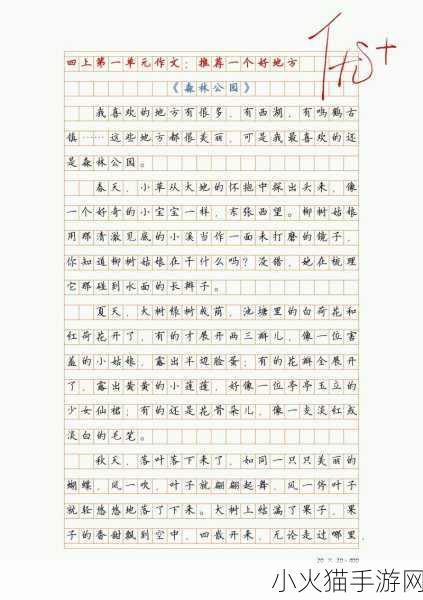 优+
四上第一单元作文：推荐一个好地方
《森林公园》
我喜欢的地方有很多，有西湖，有鸣鹤古
镇……这些地方都很美丽，可是我最喜欢的还
是森林公园。
春天，小草从大地的怀抱中探出头来，像
一个好奇的小宝宝一样，东张西望。柳树姑娘
用那清澈见底的小溪当作一面未打磨的镜子，
你知道柳树姑娘在干什么吗？没错，她在梳理
它那碰到水面的长辫子。
夏天，大树绿树成荫，池塘里的白荷花和
红荷花开了，有的才展开两三瓣儿，像一位害
羞的小姑娘，露出半边脸蛋；有的花瓣全展开
了，露出黄黄的小莲蓬，好像一位亭亭玉立的
少女仙裙；有的还是花骨朵儿，像一支淡红或
淡白的毛笔。
秋天，落叶落下来了，如同一只只美丽的
蝴蝶，风一吹，叶子就翩翩起舞，风一停叶子
就轻悠悠地落了下来。大树上结满了果子，果
子的香甜飘到空中，四散开来，无论走过哪里，
20×20=400
小火猫手游网